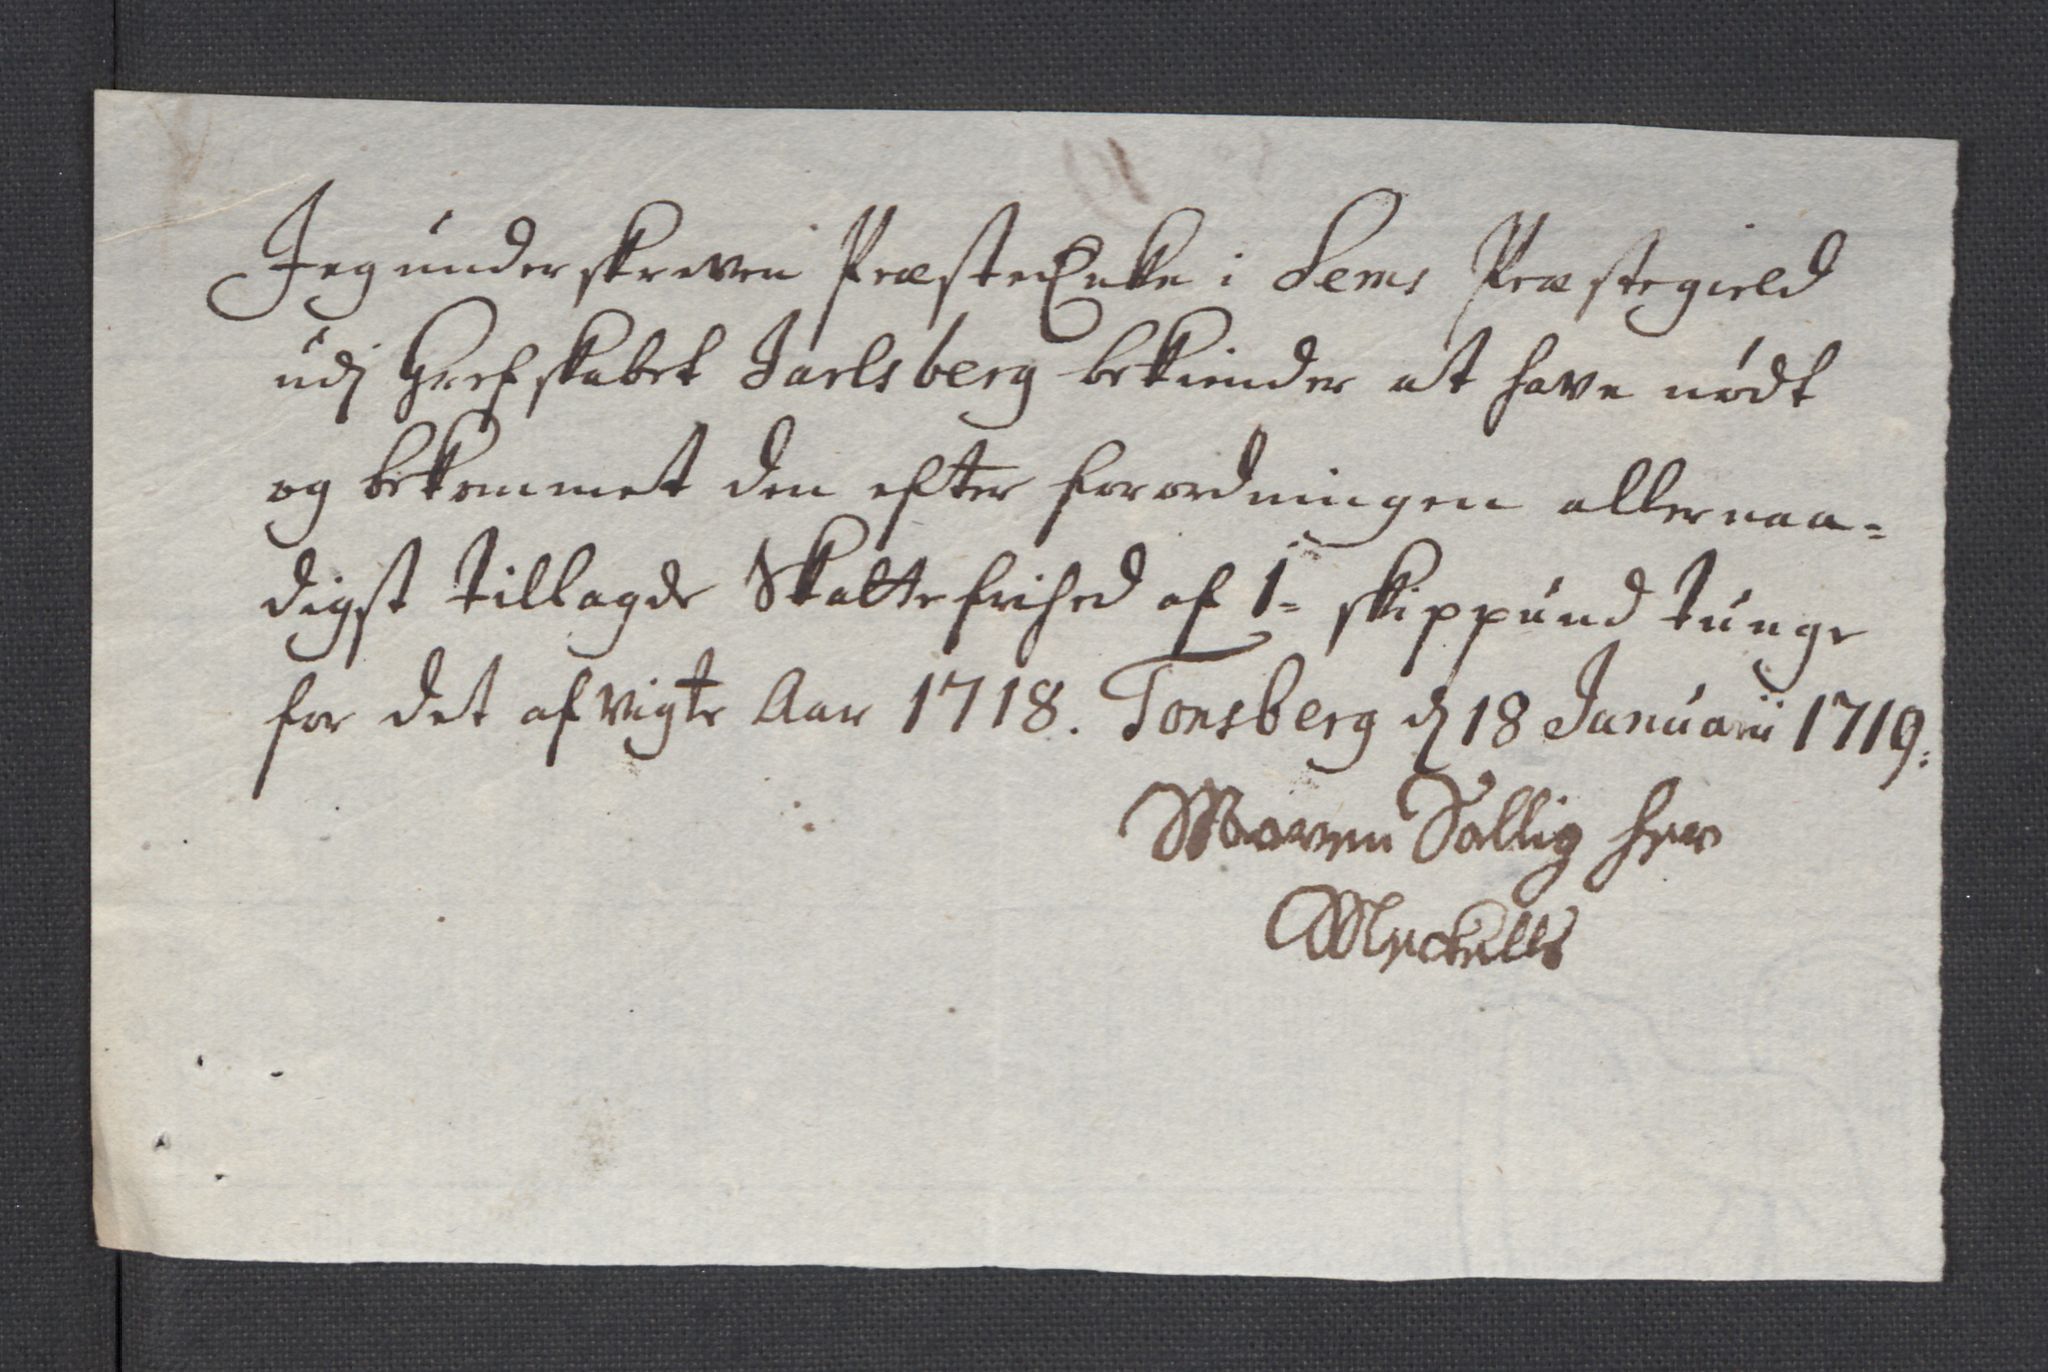 Jeg underskreven PræsteEnke i Sems Præstegield
udj Grefskabet Jarlsberg bekiender at have nødt
og bekommet den efter forordningen allernaa=
digst tillagde Skatte frihed af 1= skippund tunge
for det afvigte Aar 1718. Tonsberg d 18 Januarii 1719.
Maren Sallig her
Meckells